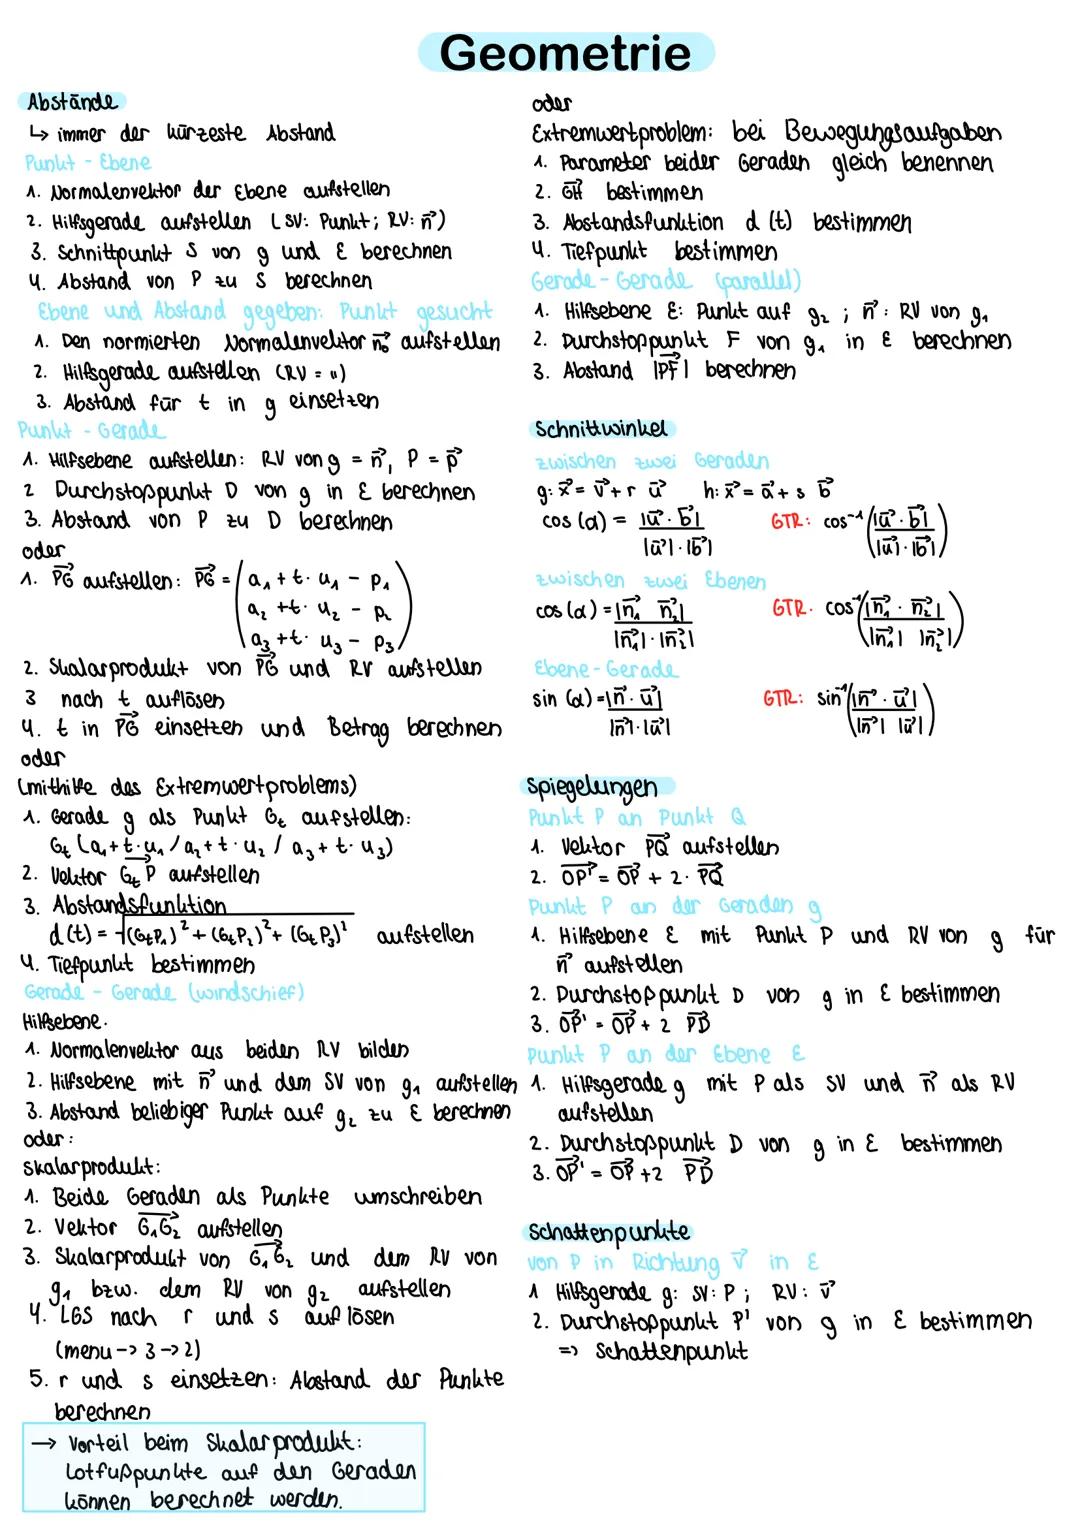 Geometrie
Abstände
↳ immer der kürzeste Abstand
Punkt - Ebene
1. Normalenvektor der Ebene aufstellen
2. Hilfsgerade aufstellen (SV: Punkt; RV: n⃗)
3. Schnittpunkt S von g und E berechnen
4. Abstand von P zu S berechnen
Ebene und Abstand gegeben: Punkt gesucht
1. Den normierten Normalenvektor n⃗₀ aufstellen
2. Hilfsgerade aufstellen (RV = ")
3. Abstand für t in g einsetzen
Punkt - Gerade
1. Hilfsebene aufstellen: RV von g = n⃗, P = p⃗
2 Durchstoßpunkt D von g in E berechnen
3. Abstand von P zu D berechnen
oder
1. PG⃗ aufstellen: PG⃗ = (a₁ + t · u₁ - p₁
a₂ + t · u₂ - p₂
a₃ + t · u₃ - p₃)
2. Skalarprodukt von PG⃗ und RV aufstellen
3 nach t auflösen
4. t in PG⃗ einsetzen und Betrag berechnen
oder
(mithilfe des Extremwertproblems)
1. Gerade g als Punkt Gₜ aufstellen:
Gₜ (a₁ + t · u₁ / a₂ + t · u₂ / a₃ + t · u₃)
2. Vektor GₜP⃗ aufstellen
3. Abstandsfunktion
d(t) = √((GₜP₁)² + (GₜP₂)² + (GₜP₃)²) aufstellen
4. Tiefpunkt bestimmen
Gerade - Gerade (windschief)
Hilfsebene.
1. Normalenvektor aus beiden RV bilden
2. Hilfsebene mit n⃗ und dem SV von g₁ aufstellen
3. Abstand beliebiger Punkt auf g₂ zu E berechnen
oder:
Skalarprodukt:
1. Beide Geraden als Punkte umschreiben
2. Vektor G₁G₂⃗ aufstellen
3. Skalarprodukt von G₁G₂⃗ und dem RV von
g₁ bzw. dem RV von g₂ aufstellen
4. LGS nach r und s auflösen
(menu -> 3 -> 2)
5. r und s einsetzen: Abstand der Punkte
berechnen
→ Vorteil beim Skalarprodukt:
Lotfußpunkte auf den Geraden
können berechnet werden.
oder
Extremwertproblem: bei Bewegungsaufgaben
1. Parameter beider Geraden gleich benennen
2. GH⃗ bestimmen
3. Abstandsfunktion d (t) bestimmen
4. Tiefpunkt bestimmen
Gerade - Gerade (parallel)
1. Hilfsebene E: Punkt auf g₂ ; n⃗: RV von g₁
2. Durchstoßpunkt F von g₁ in E berechnen
3. Abstand |PF⃗| berechnen
Schnittwinkel
zwischen zwei Geraden
g: x⃗ = v⃗ + r u⃗ h: x⃗ = a⃗ + s b⃗
cos (α) = |u⃗ · b⃗| / |u⃗| · |b⃗| GTR: cos⁻¹ (|u⃗ · b⃗| / |u⃗| · |b⃗|)
zwischen zwei Ebenen
cos (α) = |n₁⃗ n₂⃗| / |n₁⃗| · |n₂⃗| GTR. cos⁻¹ (|n₁⃗ · n₂⃗| / |n₁⃗| |n₂⃗|)
Ebene - Gerade
sin (α) = |n⃗ · u⃗| / |n⃗| · |u⃗| GTR: sin⁻¹ (|n⃗ · u⃗| / |n⃗| |u⃗|)
Spiegelungen
Punkt P an Punkt Q
1. Vektor PQ⃗ aufstellen
2. OP'⃗ = OP⃗ + 2 · PQ⃗
Punkt P an der Geraden g
1. Hilfsebene E mit Punkt P und RV von g für
n⃗ aufstellen
2. Durchstoßpunkt D von g in E bestimmen
3. OP'⃗ = OP⃗ + 2 PD⃗
Punkt P an der Ebene E
1. Hilfsgerade g mit P als SV und n⃗ als RV
aufstellen
2. Durchstoßpunkt D von g in E bestimmen
3. OP'⃗ = OP⃗ + 2 PD⃗
Schattenpunkte
von P in Richtung v⃗ in E
1 Hilfsgerade g: SV: P ; RV: v⃗
2. Durchstoßpunkt P' von g in E bestimmen
=> Schattenpunkt